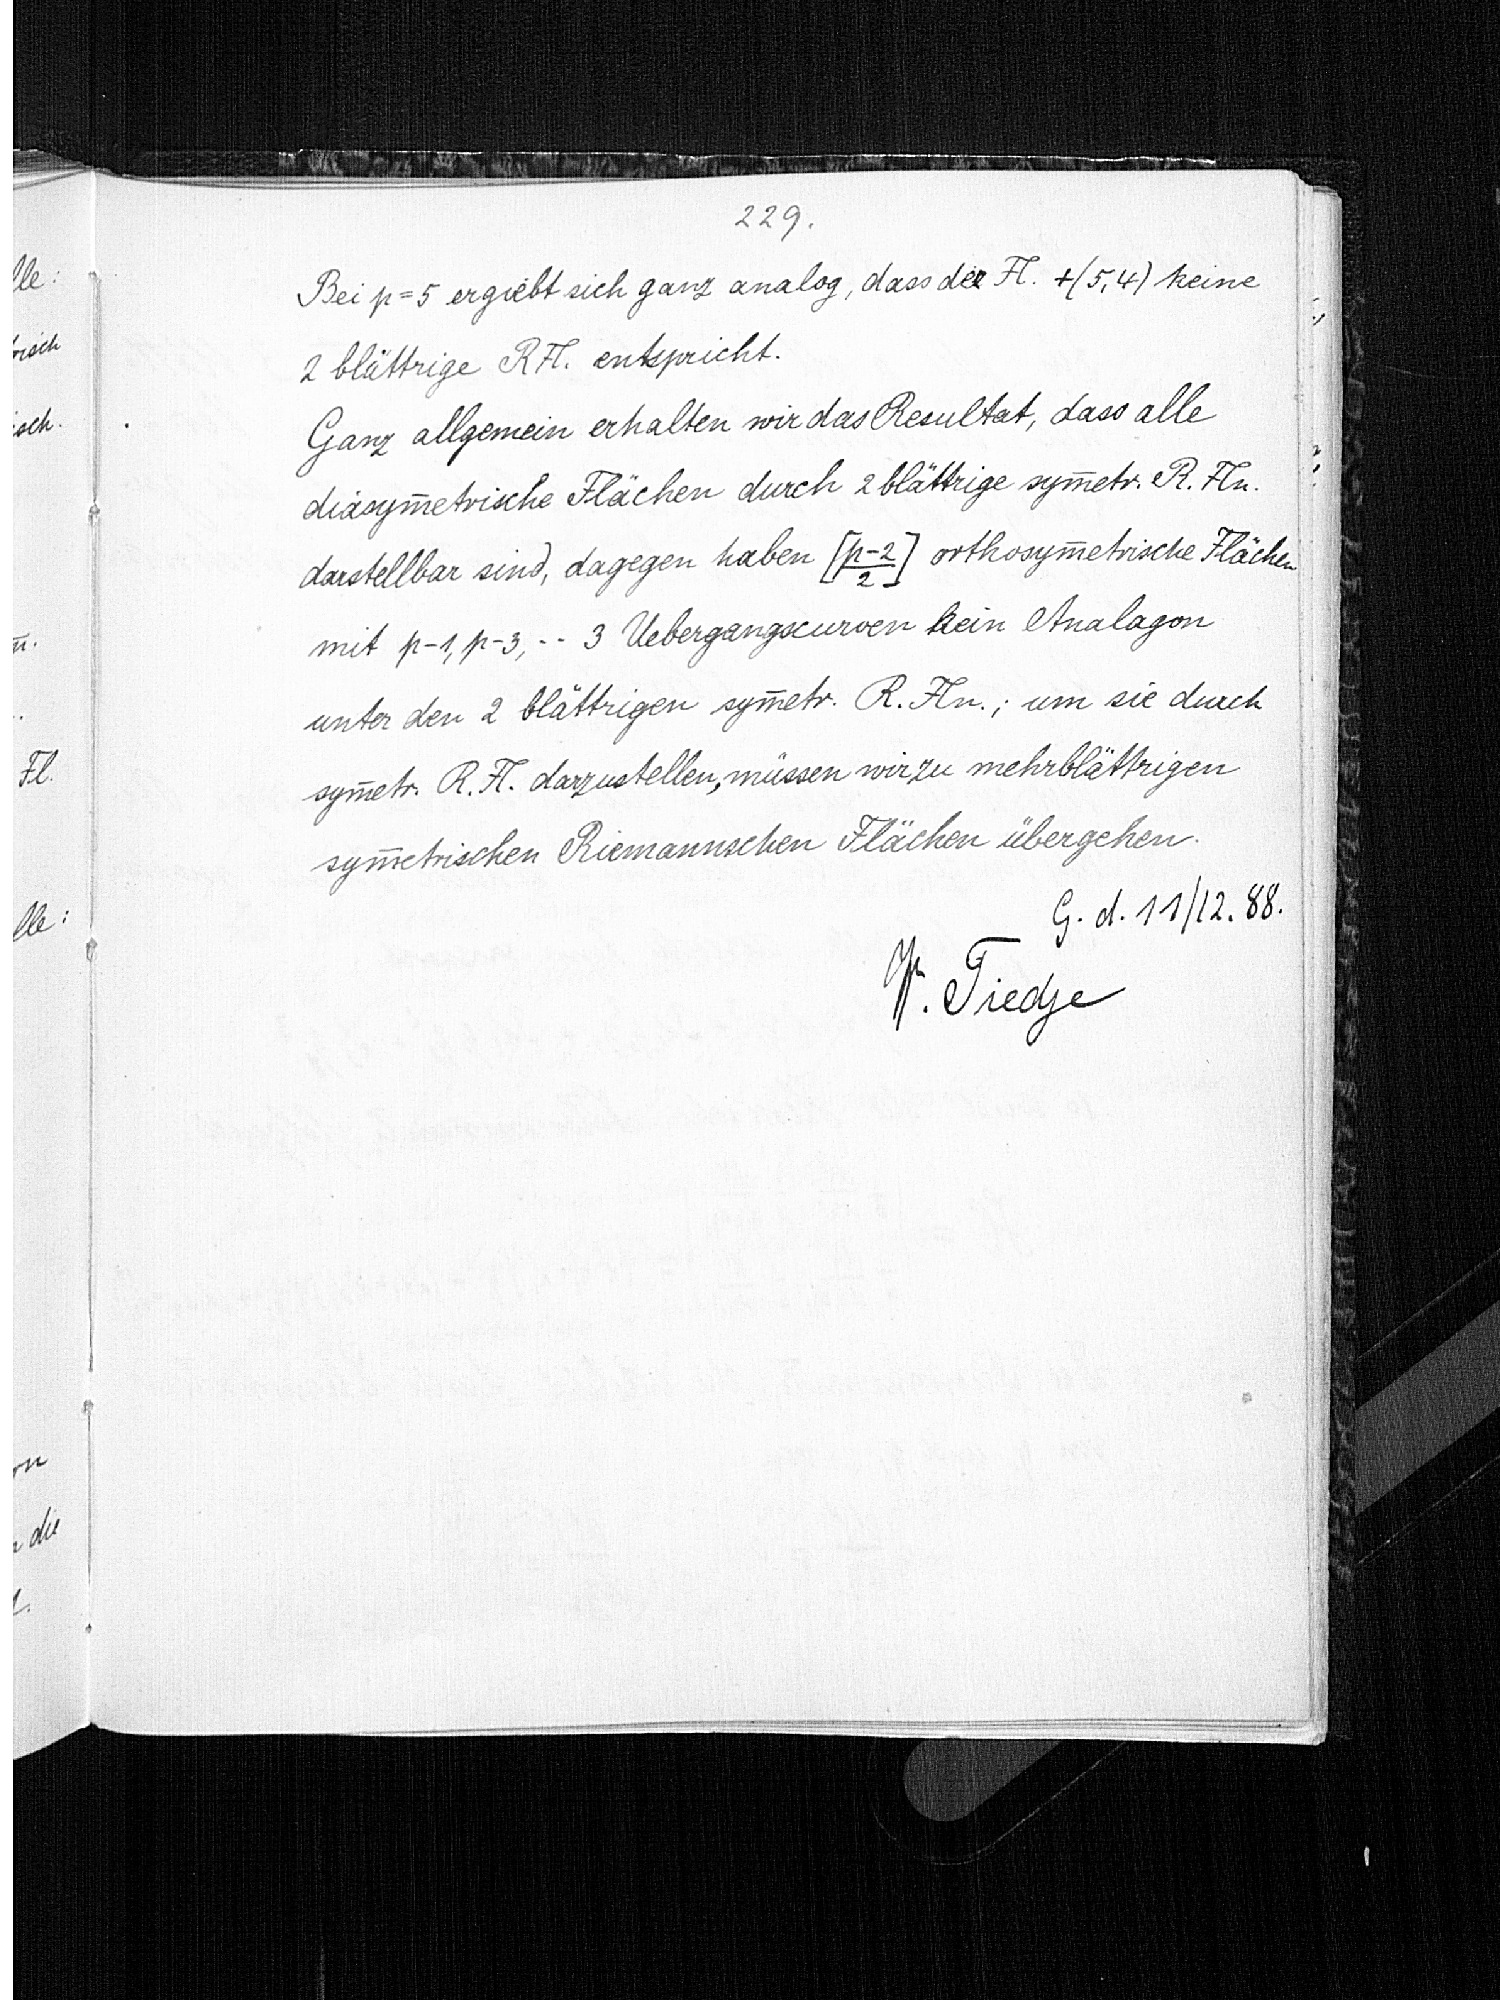 229.
Bei p=5 ergiebt sich ganz analog, dass der Fl. +(5,4) keine
2 blättrige R Fl. entspricht.
Ganz allgemein erhalten wir das Resultat, dass alle
diasym̅etrische Flächen durch 2 blättrige sym̅etr. R. Fln.
darstellbar sind, dagegen haben [p-2/2] orthosym̅etrische Flächen
mit p-1, p-3, -- 3 Uebergangscurven kein Analagon
unter den 2 blättrigen sym̅etr. R. Fln.; um sie durch
sym̅etr. R. Fl. darzustellen, müssen wir zu mehrblättrigen
sym̅etrischen Riemannschen Flächen übergehen.
G. d. 11/12. 88.
Tiedje
lle:
isch.
Fl.
lle:
on
die